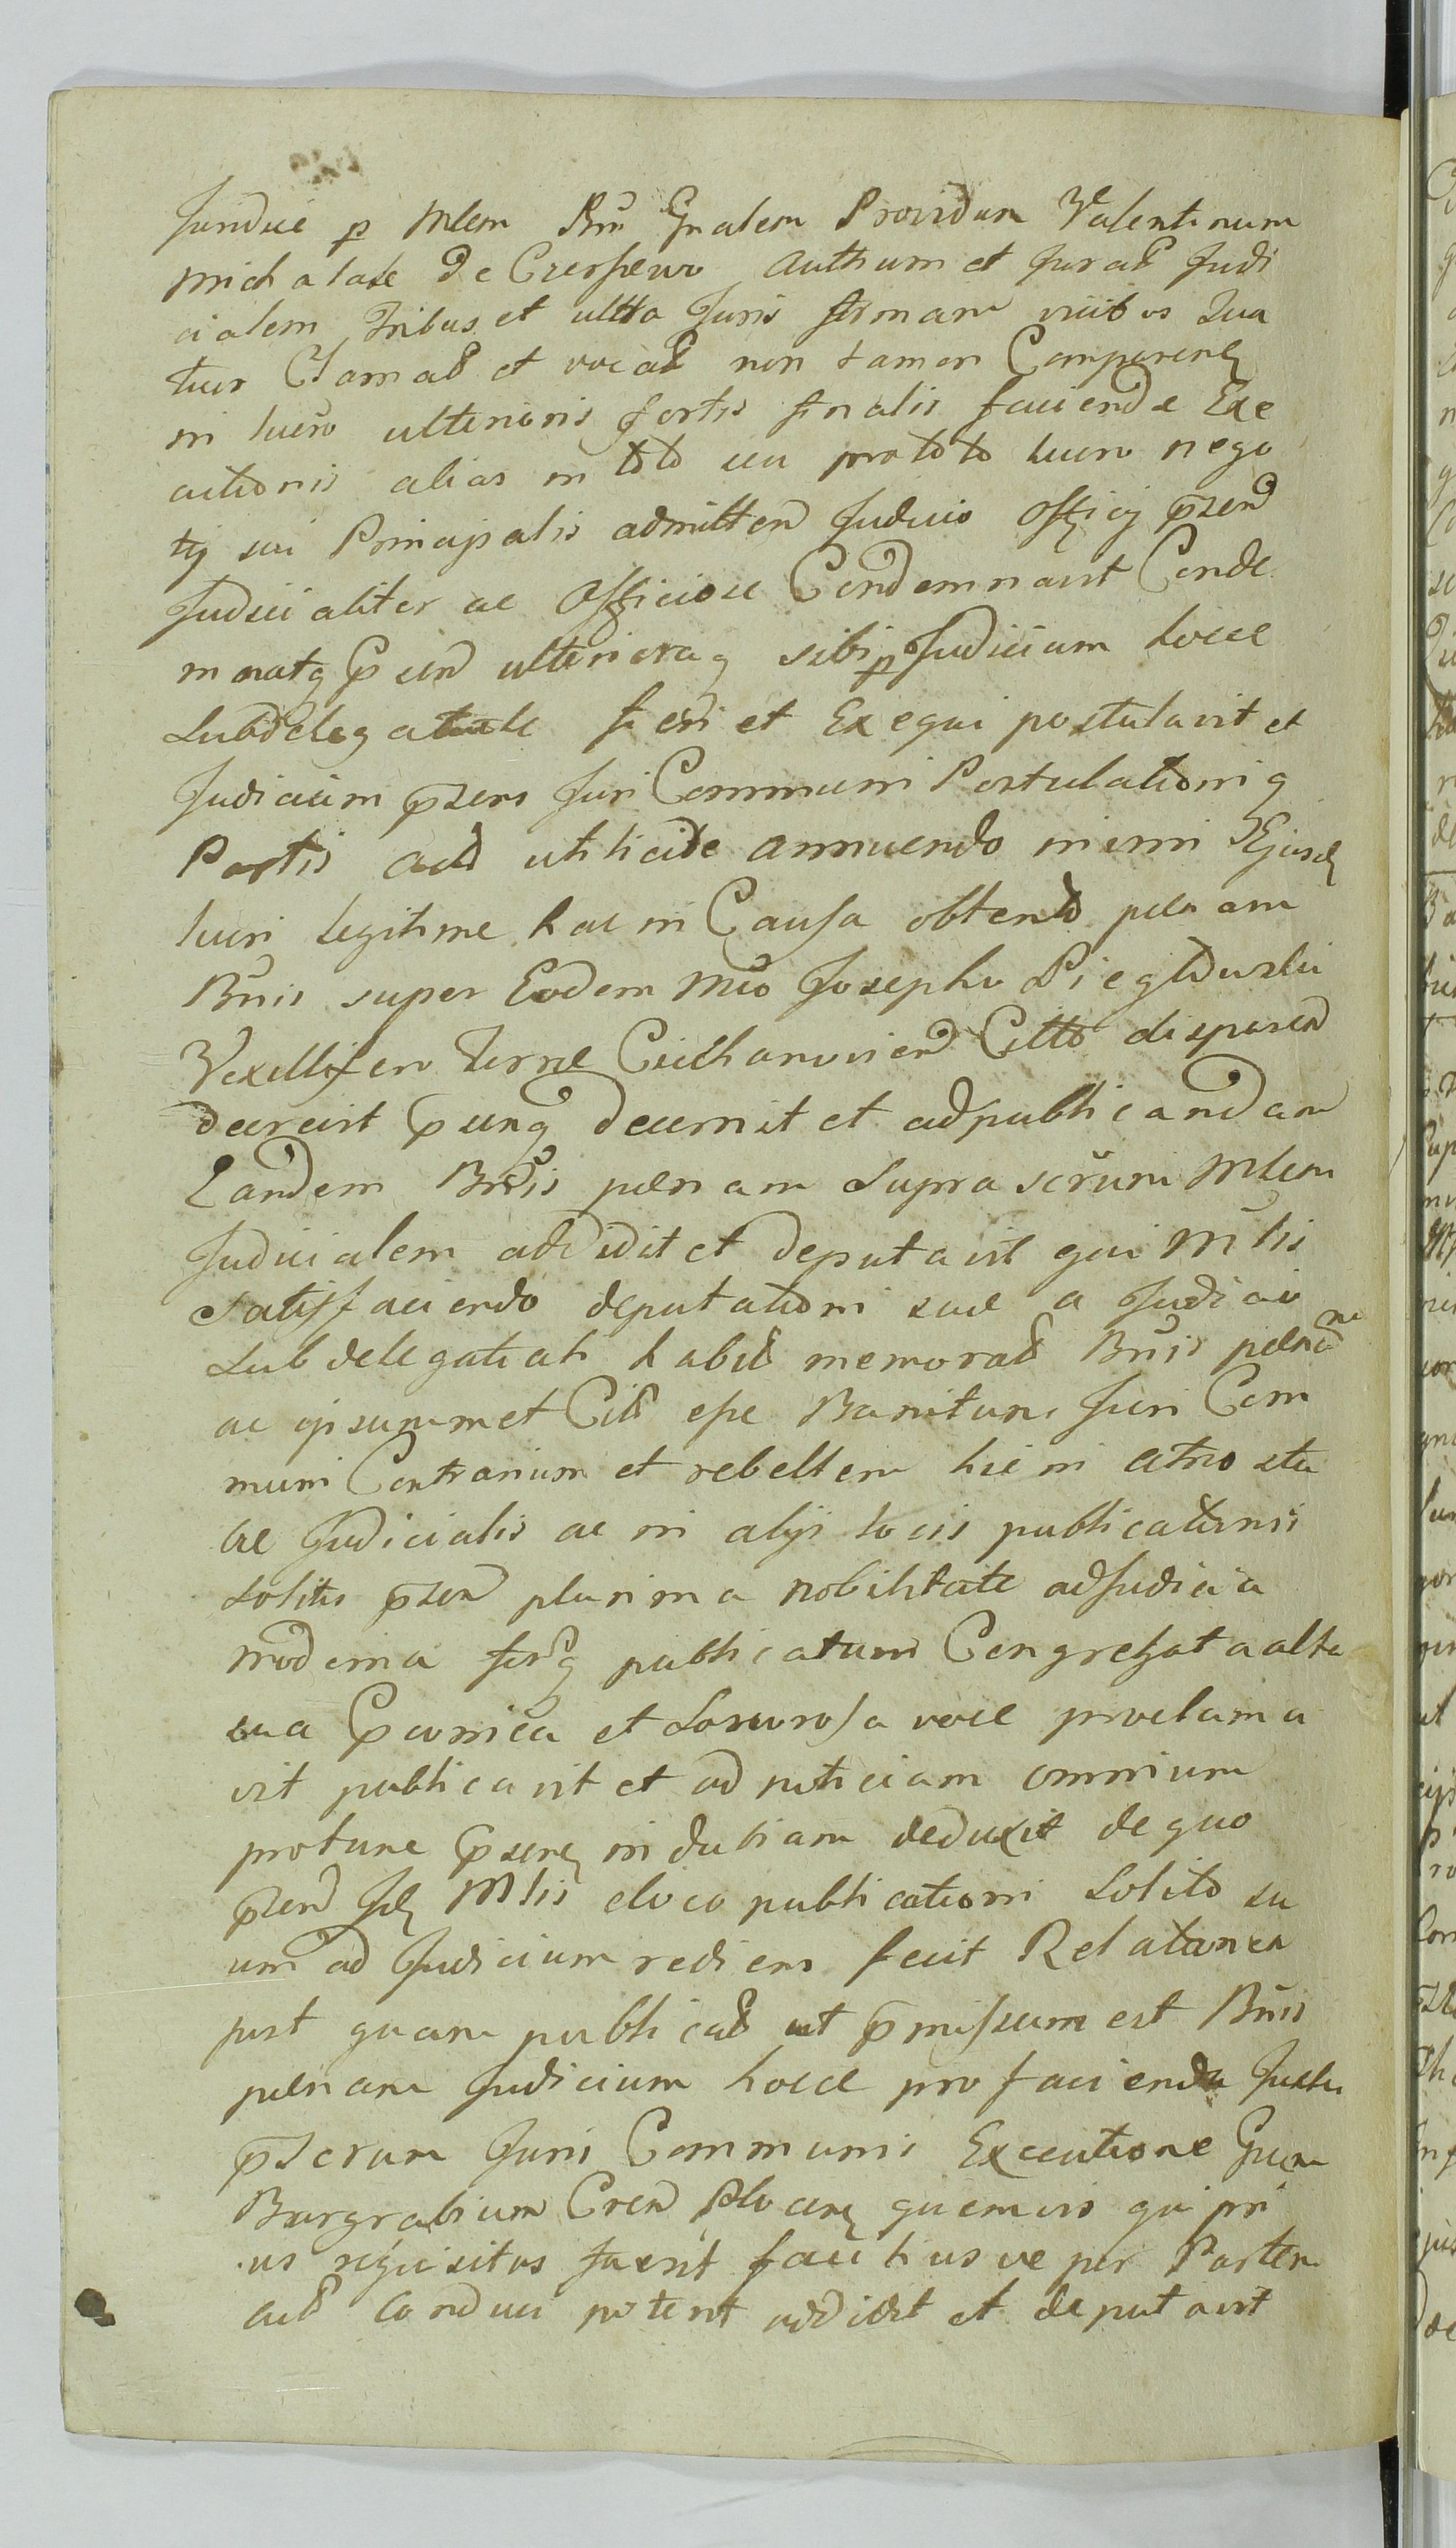 Juridice p Mlem Rni Gnalem Providum Valentinum
Michalak de Czerpewo Authum et Jurat Judi
cialem Tribus et ultra Juris firmam vicibus Qua
tuor Clamat et vocat non tamen Comparen
in lucro ulterioris Sortis finalis faciende Exe
cutionis alias in toto ceu pro toto lucro nego
tij sui Principalis admitten Judicio Officij przen
Judicialiter ac Officiose Condemnavit Conde
mnatq P cien ulterioraq sibi p Judicium hocce
Subdelegatiale fieri et Exequi postulavit et
Judicium przens Juri Communi Postulationiq
Partis act utilicite annuendo in vim Ejusd
lucri legitime hac in Causa obtento pænam
Bnis super Eodem Mco Josepho
Vexillifero Terræ Ciechanovien Citto disparen
decrevit Pcunq decernit et ad publicandam
Eandem Bnis pænam Suprascrum Mlem
Judicialem addidit et deputavit qui Mlis
Satisfaciendo deputationi suæ a Judicio
Subdelegatiali habit memorat Bnis pænam
ac ipsummet Cit esse Banitum Juri Com
muni Contrarium et rebellem hic in atrio stu
bæ Judicialis ac in alijs locis publicationis
Solitis przen plurima nobilitate ad Judicia
moderna publicatum Congregata alta
sua Pconica et Sonorosa voce proclama
vit publicavit et ad noticiam omnium
protunc Pzen indubiam deduxit de quo
przen Jd Mlis e loco publicationi Solito su
um ad Judicium rediens fecit Relationem
post quam publicat ut pmissum est Bnis
pænam Judicium hocce pro facienda Juxta
pscrum Juris Communis Executione Gnum
Burgrabium Cren Plocen quemvis qui pri
us requisitus fuerit faciliusve per Partem
act conduci poterit addidit et deputavit